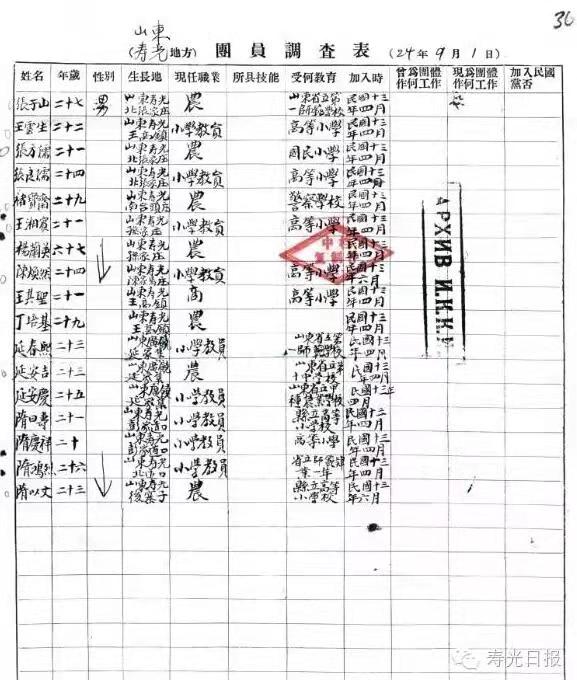 36
山東
(寿光地方) 團員調查表 (24年9月1日)
姓名 年歲 性別 生長地 現任職業 所具技能 受何教育 加入時 曾爲團體作何工作 現爲團體作何工作 加入民國黨否
張予山 二十七 男 山東寿光北張家庄 農 山東省立第一師範學校 民國十三年四月
王雲生 二十二 山東寿光王高鎮 小學教員 高等小學 民國十三年四月
張方儒 二十一 山東寿光北張家庄 農 國民小學 民國十三年四月
張良儒 二十四 山東寿光北張家庄 小學教員 高等小學 民國十三年四月
二十九 山東寿光南台頭庄 農 警察學校 民國十三年四月
王湘賓 二十一 山東寿光張家庄 小學教員 高等小學 民國十三年四月
楊蘭英 六十七 山東寿光孫家庄 農 民國十三年四月
陳煥然 二十四 山東寿光陳家庄 小學教員 高等小學 民國十三年六月
王其聖 二十一 山東寿光王高鎮 商 高等小學 民國十三年四月
丁培基 二十九 山東寿光王高鎮 農 民國十三年四月
延春熙 二十三 山東廣饒延家集 小學教員 山東省立第一師範學校 民國十三年四月
延安吉 二十三 山東廣饒延家集 農 山東省立第十中學校 民國十三年四月
延安慶 二十五 山東廣饒延家集 小學教員 民國十三年四月
隋曰壽 二十一 山東寿光彭家道口 小學教員 縣立高等小學校 民國十二年四月
隋慶祥 二十 山東寿光彭家道口 小學教員 高等小學 民國十三年四月
隋鴻烈 二十六 山東寿光 小學教員 民國十三年四月
隋以文 二十三 山東寿光後寨子 農 縣立高等小學校 民國十三年六月
АРХИВ И.К.К.И.
寿光日报